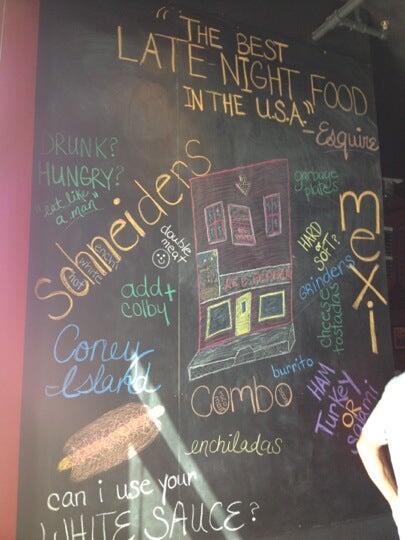 "THE BEST
LATE NIGHT FOOD
IN THE U.S.A."
- Esquire
DRUNK?
HUNGRY?
"eat like
a man"
Schneiders
garbage
plates
mexi
double
meat
HARD
or
SOFT?
grinders
add +
colby
cheese
tostadas
Coney
Island
burrito
combo
HAM
Turkey
OR
Salami
enchiladas
can i use your
WHITE SAUCE?